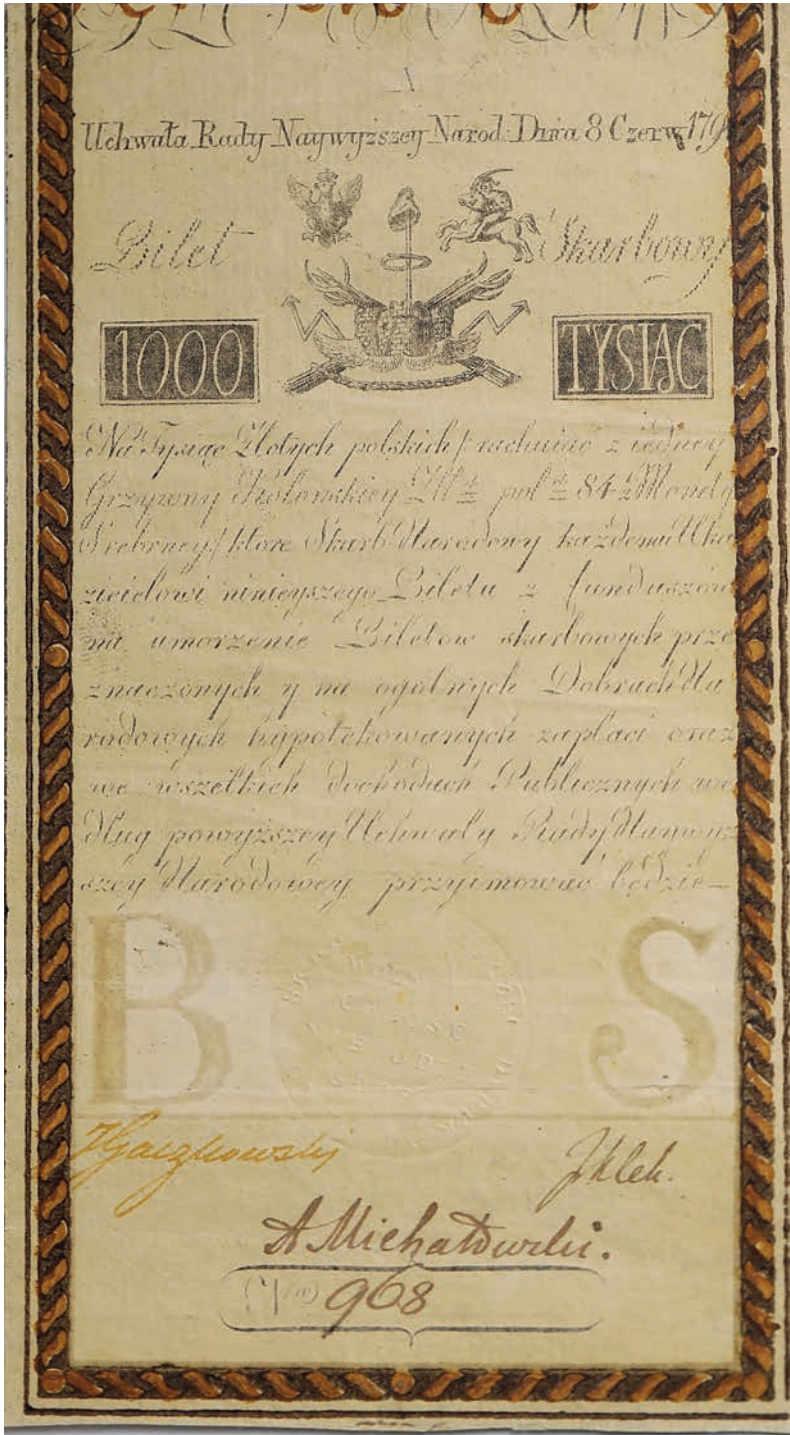 A
Uchwała Rady Naywyższey Narod: Dnia 8 Czerw 179
Bilet Skarbowy
1000 TYSIĄC
Na Tysiąc Złotych polskich / rachuiąc z iedney
Grzywny Kolonskiey Zł pol 84 ½ Monety
Srebrney / ktore Skarb Narodowy każdemu Uka
zicielowi ninieyszego Biletu z funduszów
na umorzenie Biletow skarbowych prze
znaczonych y na ogolnych Dobrach Na
rodowych hypotekowanych zapłaci oraz
we wszelkich dochodach Publicznych we
dług powyższey Uchwały Rady Naywyż
szey Narodowey przyimować będzie—
B S
JKlek.
A Michałowski.
No 968